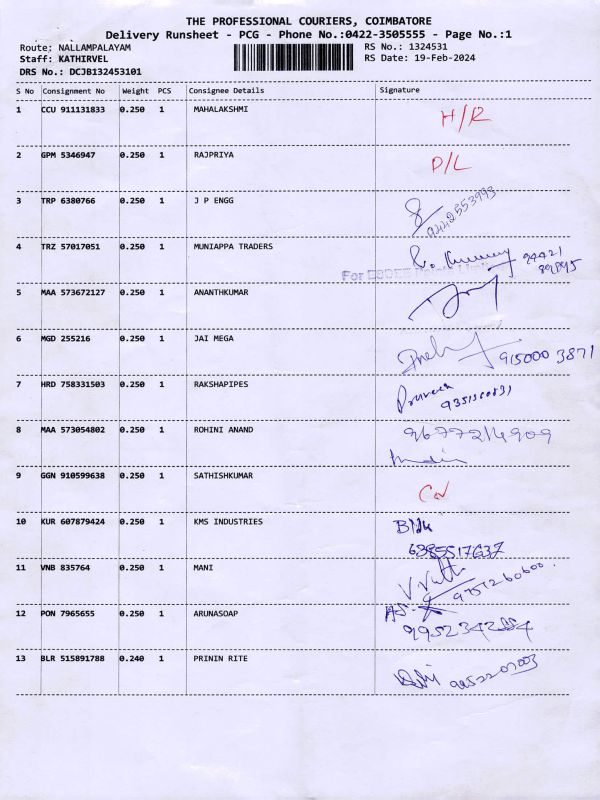 THE PROFESSIONAL COURIERS, COIMBATORE
Delivery Runsheet - PCG - Phone No.:0422-3505555 - Page No.:1
Route: NALLAMPALAYAM RS No.: 1324531
Staff: KATHIRVEL RS Date: 19-Feb-2024
DRS No.: DCJB132453101
S No Consignment No Weight PCS Consignee Details Signature
1 CCU 911131833 0.250 1 MAHALAKSHMI H/R
2 GPM 5346947 0.250 1 RAJPRIYA D/L
3 TRP 6380766 0.250 1 J P ENGG 9442553993
4 TRZ 57017051 0.250 1 MUNIAPPA TRADERS
For
5 MAA 573672127 0.250 1 ANANTHKUMAR
6 MGD 255216 0.250 1 JAI MEGA 915000 3871
7 HRD 758331503 0.250 1 RAKSHAPIPES
8 MAA 573054802 0.250 1 ROHINI ANAND 9677214909
9 GGN 910599638 0.250 1 SATHISHKUMAR
10 KUR 607879424 0.250 1 KMS INDUSTRIES
6385517637
11 VNB 835764 0.250 1 MANI 9751260600
12 PON 7965655 0.250 1 ARUNASOAP
13 BLR 515891788 0.240 1 PRININ RITE